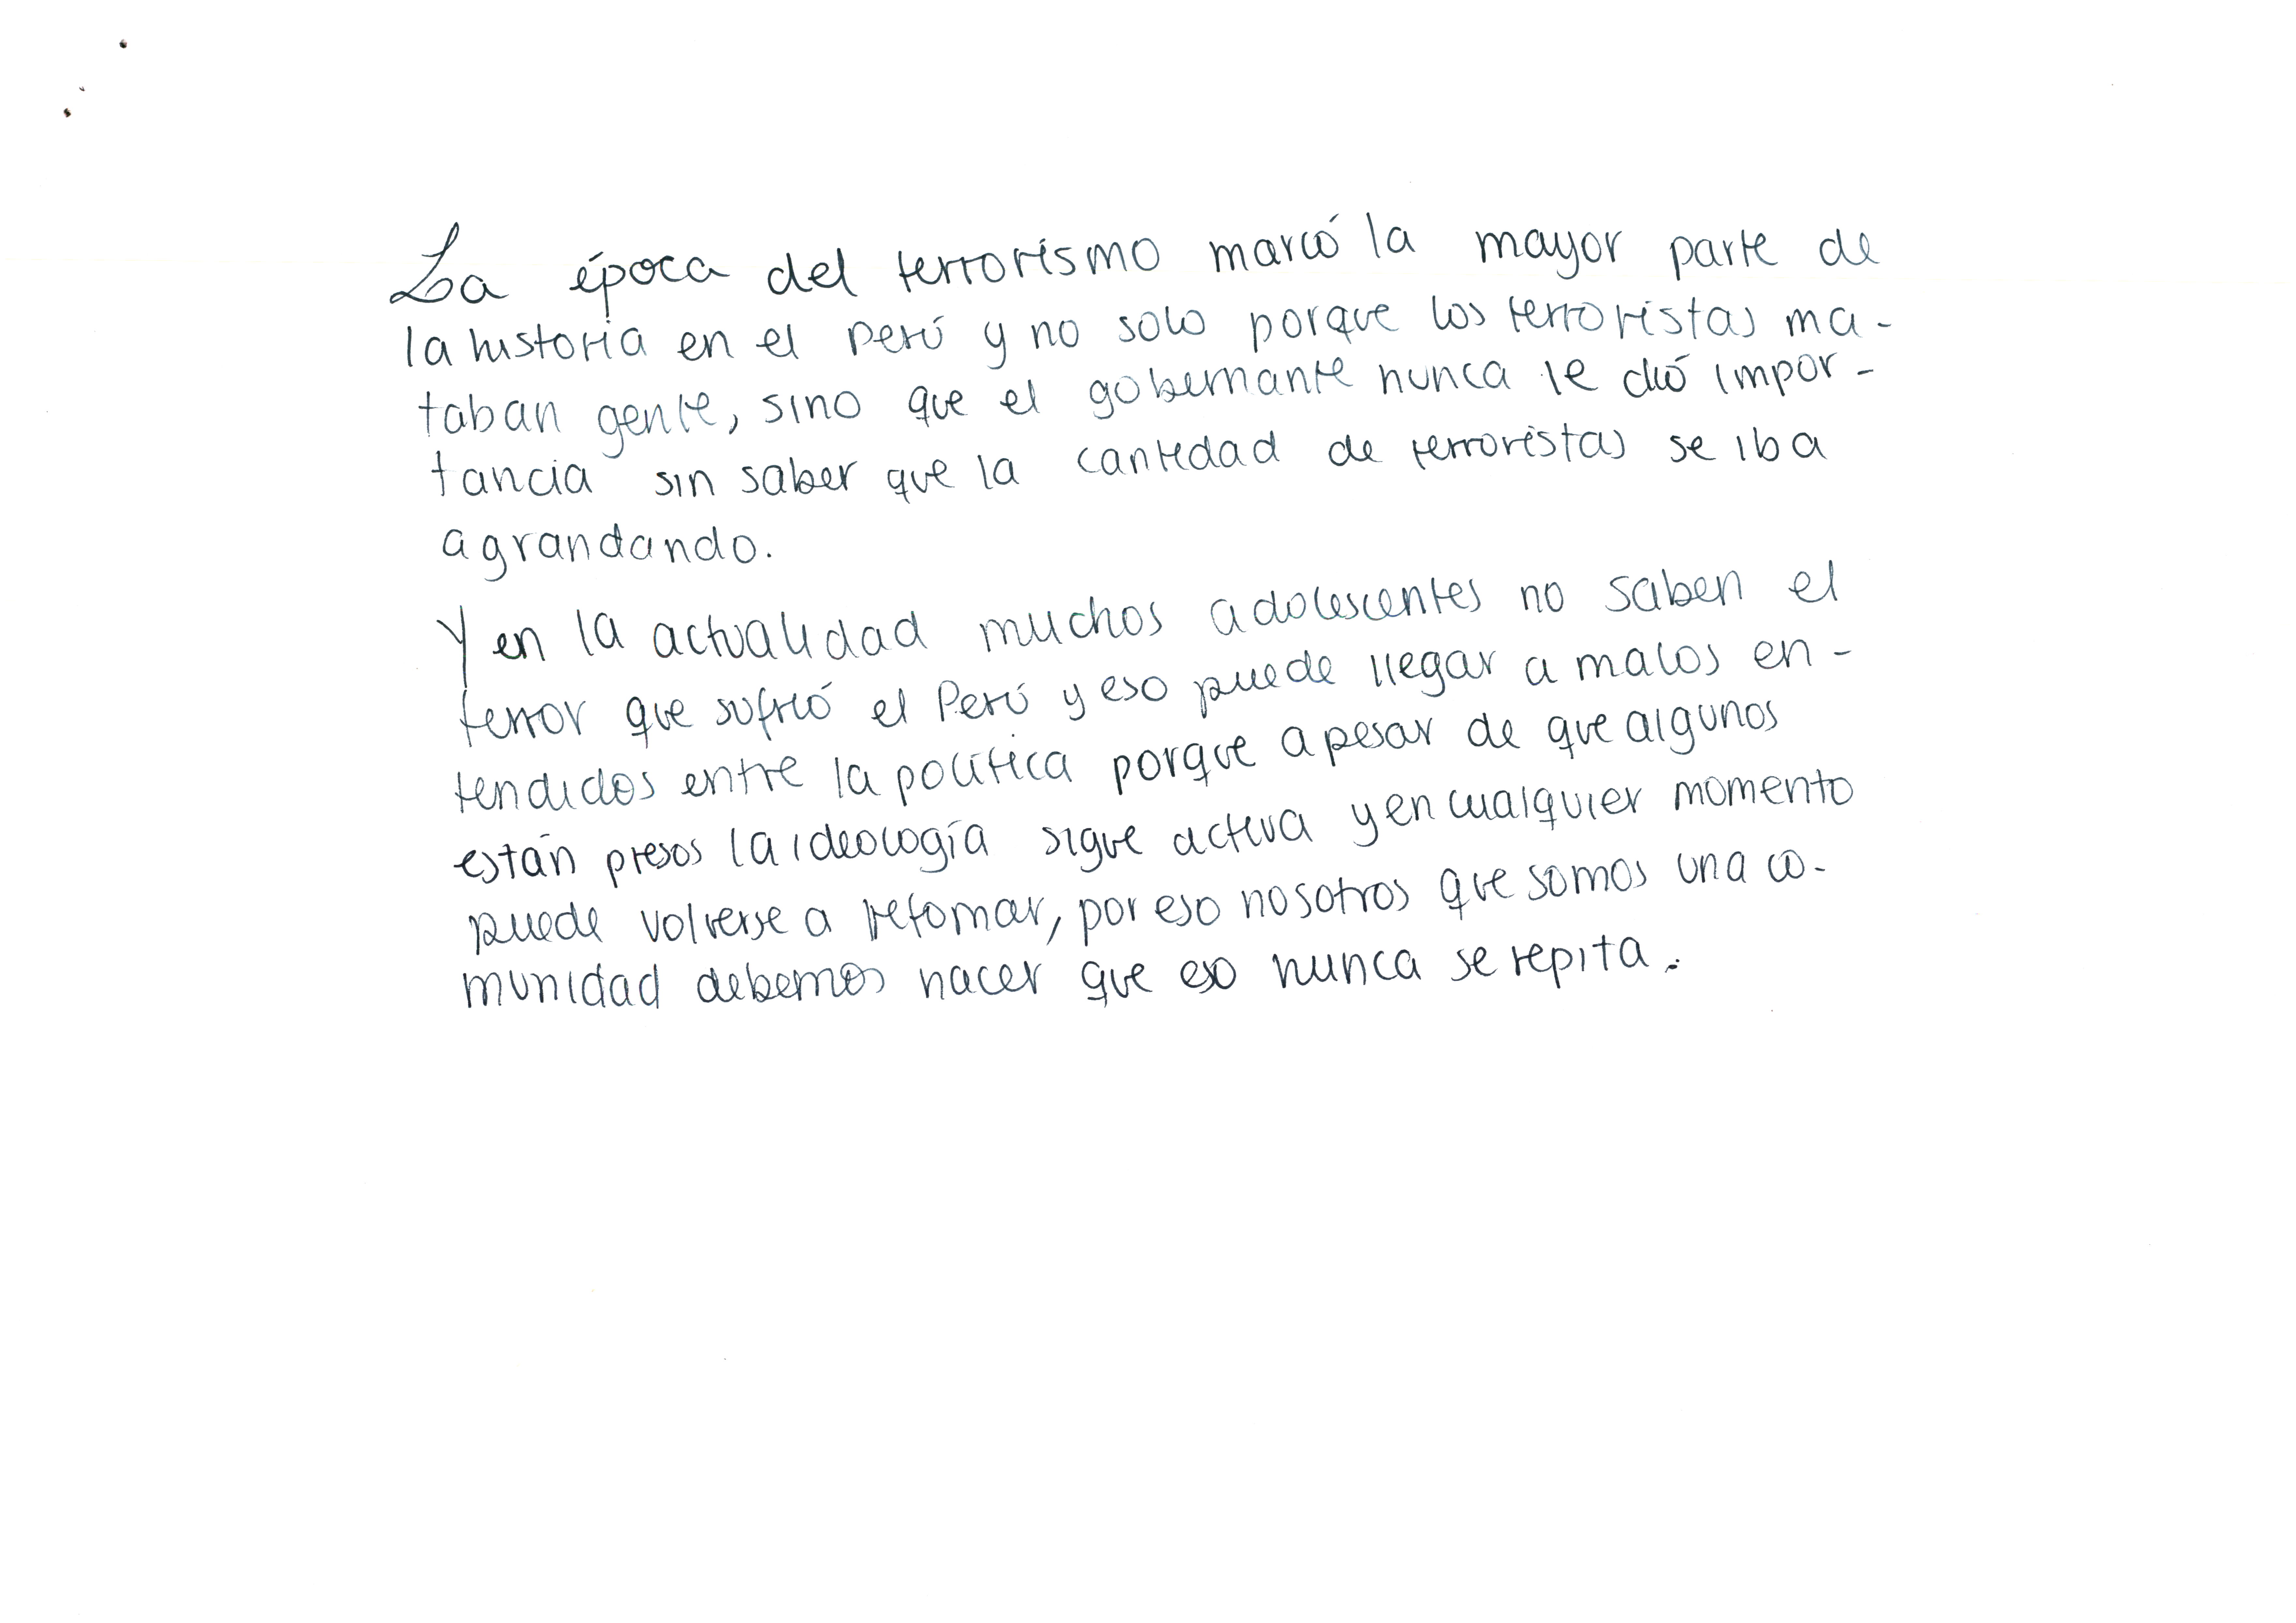 La época del terrorismo marcó la mayor parte de
la historia en el Perú y no solo porque los terroristas ma-
taban gente, sino que el gobernante nunca le dió impor-
tancia sin saber que la cantidad de terroristas se iba
agrandando.
Y en la actualidad muchos adolescentes no saben el
terror que sufrió el Perú y eso puede llegar a malos en-
tendidos entre la política porque apesar de que algunos
están presos la ideología sigue activa y en cualquier momento
puede volverse a retomar, por eso nosotros que somos una co-
munidad debemos hacer que eso nunca se repita.